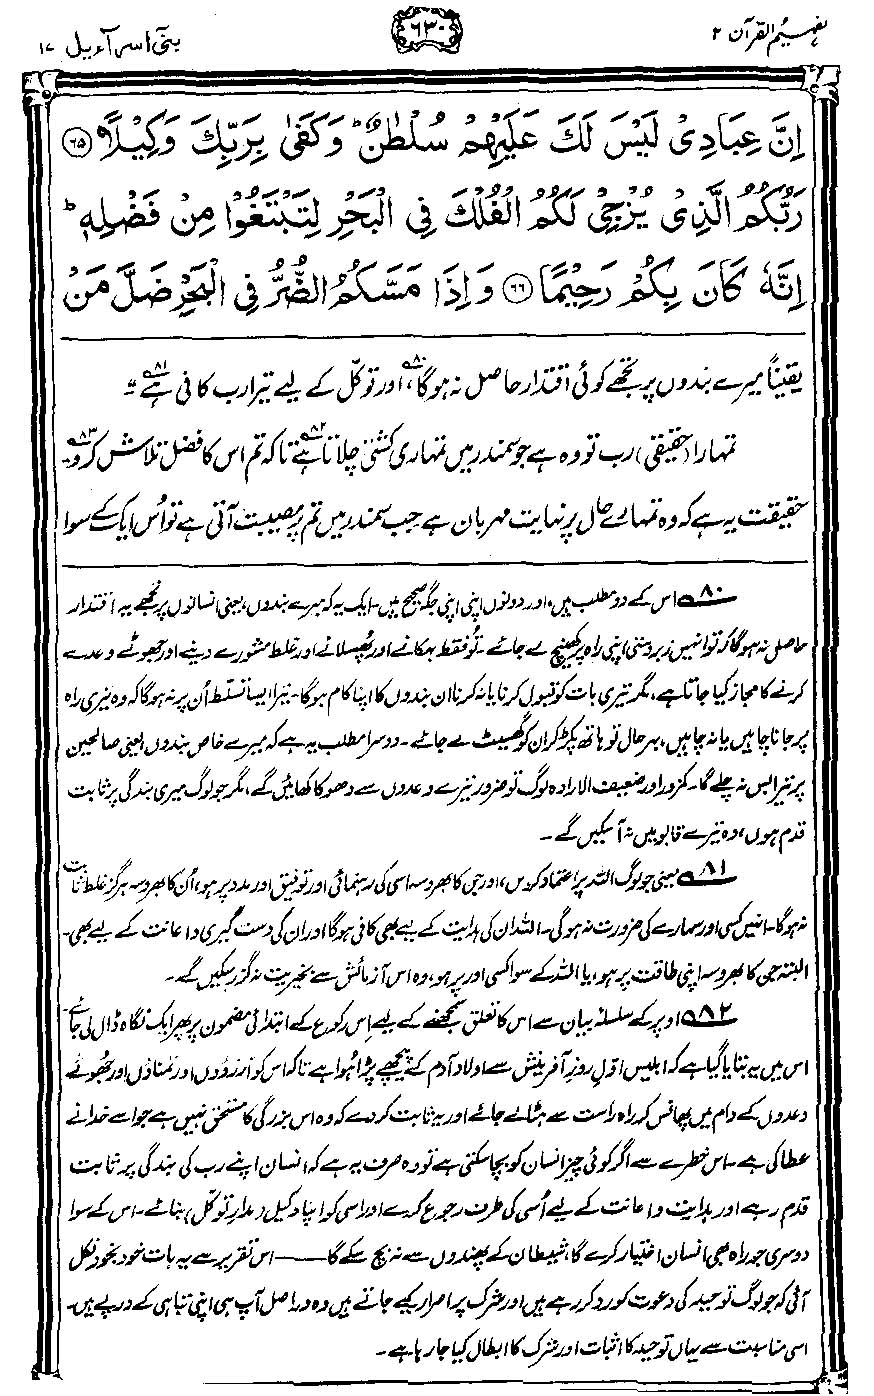 تفہیم القرآن ۲
۶۳۰
بنی اسرآءیل ۱۷
اِنَّ عِبَادِیْ لَیْسَ لَكَ عَلَیْهِمْ سُلْطٰنٌ ؕ وَكَفٰی بِرَبِّكَ وَكِیْلًا ﴿۶۵﴾
رَبُّكُمُ الَّذِیْ یُزْجِیْ لَكُمُ الْفُلْكَ فِی الْبَحْرِ لِتَبْتَغُوْا مِنْ فَضْلِهٖ ؕ
اِنَّهٗ كَانَ بِكُمْ رَحِیْمًا ﴿۶۶﴾ وَاِذَا مَسَّكُمُ الضُّرُّ فِی الْبَحْرِ ضَلَّ مَنْ
یقیناً میرے بندوں پر تجھے کوئی اقتدار حاصل نہ ہوگا،۸۰ اور توکّل کے لیے تیرا رب کافی ہے۸۱۔"
تمہارا (حقیقی) رب تو وہ ہے جو سمندر میں تمہاری کشتی چلاتا ہے۸۲ تاکہ تم اس کا فضل تلاش کرو۸۳۔
حقیقت یہ ہے کہ وہ تمہارے حال پر نہایت مہربان ہے۔ جب سمندر میں تم پر مصیبت آتی ہے تو اُس ایک کے سوا
۸۰ اس کے دو مطلب ہیں، اور دونوں اپنی اپنی جگہ صحیح ہیں۔ ایک یہ کہ میرے بندوں، یعنی انسانوں پر تجھے یہ اقتدار
حاصل نہ ہوگا کہ تو انہیں زبردستی اپنی راہ پر کھینچ لے جائے۔ تُو فقط بہکانے اور پھسلانے اور غلط مشورے دینے اور جھوٹے وعدے
کرنے کا مجاز کیا جاتا ہے، مگر تیری بات کو قبول کرنا یا نہ کرنا ان بندوں کا اپنا کام ہوگا۔ تیرا ایسا تسلط اُن پر نہ ہوگا کہ وہ تیری راہ
پر جانا چاہیں یا نہ چاہیں، بہرحال تو ہاتھ پکڑ کر ان کو گھسیٹ لے جائے۔ دوسرا مطلب یہ ہے کہ میرے خاص بندوں، یعنی صالحین
پر تیرا بس نہ چلے گا۔ کمزور اور ضعیف الارادہ لوگ تو ضرور تیرے وعدوں سے دھوکا کھائیں گے، مگر جو لوگ میری بندگی پر ثابت
قدم ہوں، وہ تیرے قابو میں نہ آ سکیں گے۔
۸۱ یعنی جو لوگ اللہ پر اعتماد کریں، اور جن کا بھروسہ اسی کی رہنمائی اور توفیق اور مدد پر ہو، اُن کا بھروسہ ہرگز غلط ثابت
نہ ہوگا۔ انہیں کسی اور سہارے کی ضرورت نہ ہوگی۔ اللہ ان کی ہدایت کے لیے بھی کافی ہوگا اور ان کی دست گیری و اعانت کے لیے بھی۔
البتہ جن کا بھروسہ اپنی طاقت پر ہو، یا اللہ کے سوا کسی اور پر ہو، وہ اس آزمائش سے بخیریت نہ گزر سکیں گے۔
۸۲ اوپر کے سلسلۂ بیان سے اس کا تعلق سمجھنے کے لیے اِس رکوع کے ابتدائی مضمون پر پھر ایک نگاہ ڈال لی جائے۔
اس میں یہ بتایا گیا ہے کہ ابلیس اوّل روزِ آفرینش سے اولادِ آدم کے پیچھے پڑا ہُوا ہے تاکہ اس کو آرزوؤں اور تمناؤں اور جھوٹے
وعدوں کے دام میں پھانس کر راہ راست سے ہٹا لے جائے اور یہ ثابت کر دے کہ وہ اس بزرگی کا مستحق نہیں ہے جو اسے خدا نے
عطا کی ہے۔ اس خطرے سے اگر کوئی چیز انسان کو بچا سکتی ہے تو وہ صرف یہ ہے کہ انسان اپنے رب کی بندگی پر ثابت
قدم رہے اور ہدایت و اعانت کے لیے اُسی کی طرف رجوع کرے اور اسی کو اپنا وکیل (مدارِ توکّل) بنائے۔ اس کے سوا
دوسری جو راہ بھی انسان اختیار کرے گا، شیطان کے پھندوں سے نہ بچ سکے گا —— اس تقریر سے یہ بات خود بخود نکل
آئی کہ جو لوگ توحید کی دعوت کو رد کر رہے ہیں اور شرک پر اصرار کیے جاتے ہیں وہ دراصل آپ ہی اپنی تباہی کے درپے ہیں۔
اسی مناسبت سے یہاں توحید کا اثبات اور شرک کا ابطال کیا جا رہا ہے۔